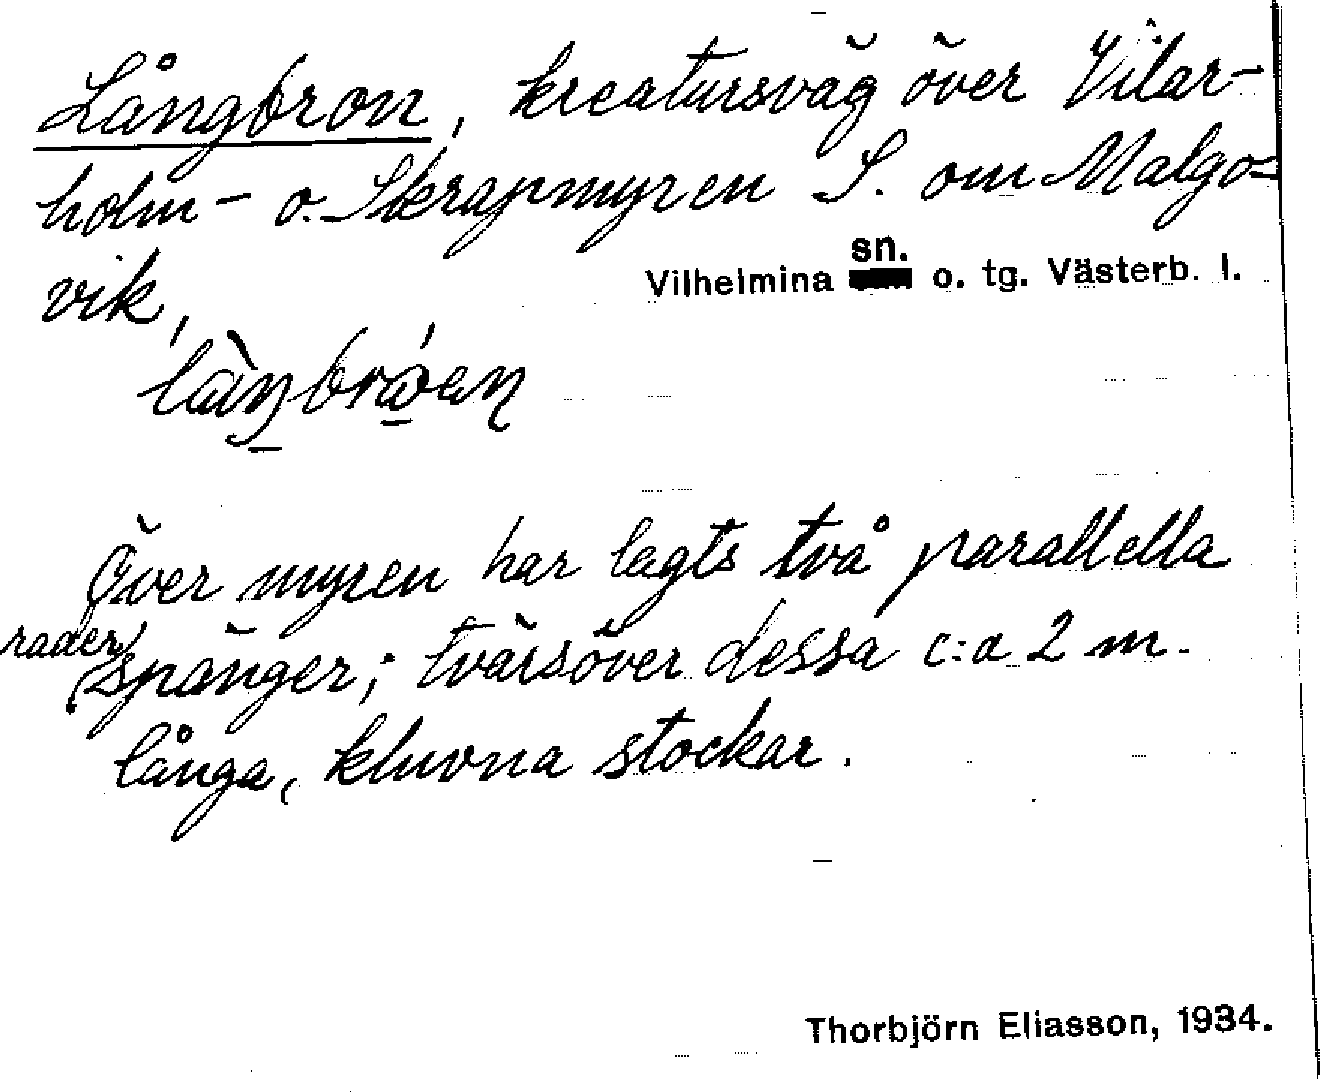 Långbron, kreatursväg över Vilar-
holm- o. Skrapmyren S. om Malgo-
vik,
Vilhelmina sn. o. tg. Västerb. l.
Över myren har lagts två parallella
rader spänger; tvärsöver dessa c:a 2 m.
långa, kluvna stockar.
Thorbjörn Eliasson, 1934.